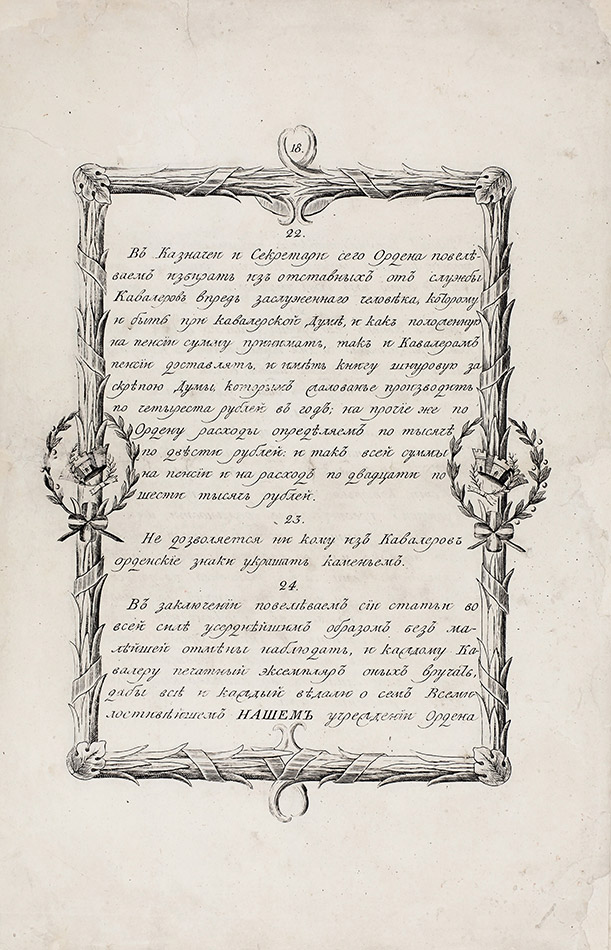 18.
22.
Въ Казначеи и Секретари сего Ордена повелѣ-
ваемъ избирать изъ отставныхъ отъ службы
Кавалеровъ впредь заслуженнаго человѣка, которому
и быть при кавалерской Думѣ, и какъ положенную
на пенсіи сумму принимать, такъ и Кавалерамъ
пенсіи доставлять, и имѣть книгу шнуровую за
скрѣпою Думы, которымъ жалованье производить
по четыреста рублей въ годъ; на прочіе же по
Ордену расходы опредѣляемъ по тысячѣ
по двѣсти рублей: и такъ всей суммы
на пенсіи и на расходъ по двадцати по
шести тысячь рублей.
23.
Не дозволяется ни кому изъ Кавалеровъ
орденскіе знаки украшать каменьемъ.
24.
Въ заключеніи повелѣваемъ сіи статьи во
всей силѣ усерднѣйшимъ образомъ безъ ма-
лѣйшей отмѣны наблюдать, и каждому Ка-
валеру печатный экземпляръ оныхъ вручать,
дабы всѣ и каждый вѣдалъ о семъ Всеми-
лостивѣйшемъ НАШЕМЪ учрежденіи Ордена